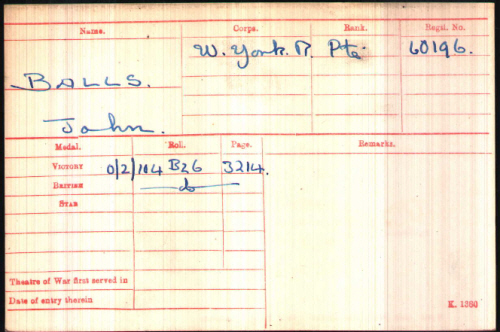 Name. Corps. Rank. Regtl. No.
W. York. R. Pte. 60196.
BALLS.
John.
Medal. Roll. Page. Remarks.
VICTORY 0/2/104 B26 3214.
BRITISH do
STAR
Theatre of War first served in
Date of entry therein
K. 1380